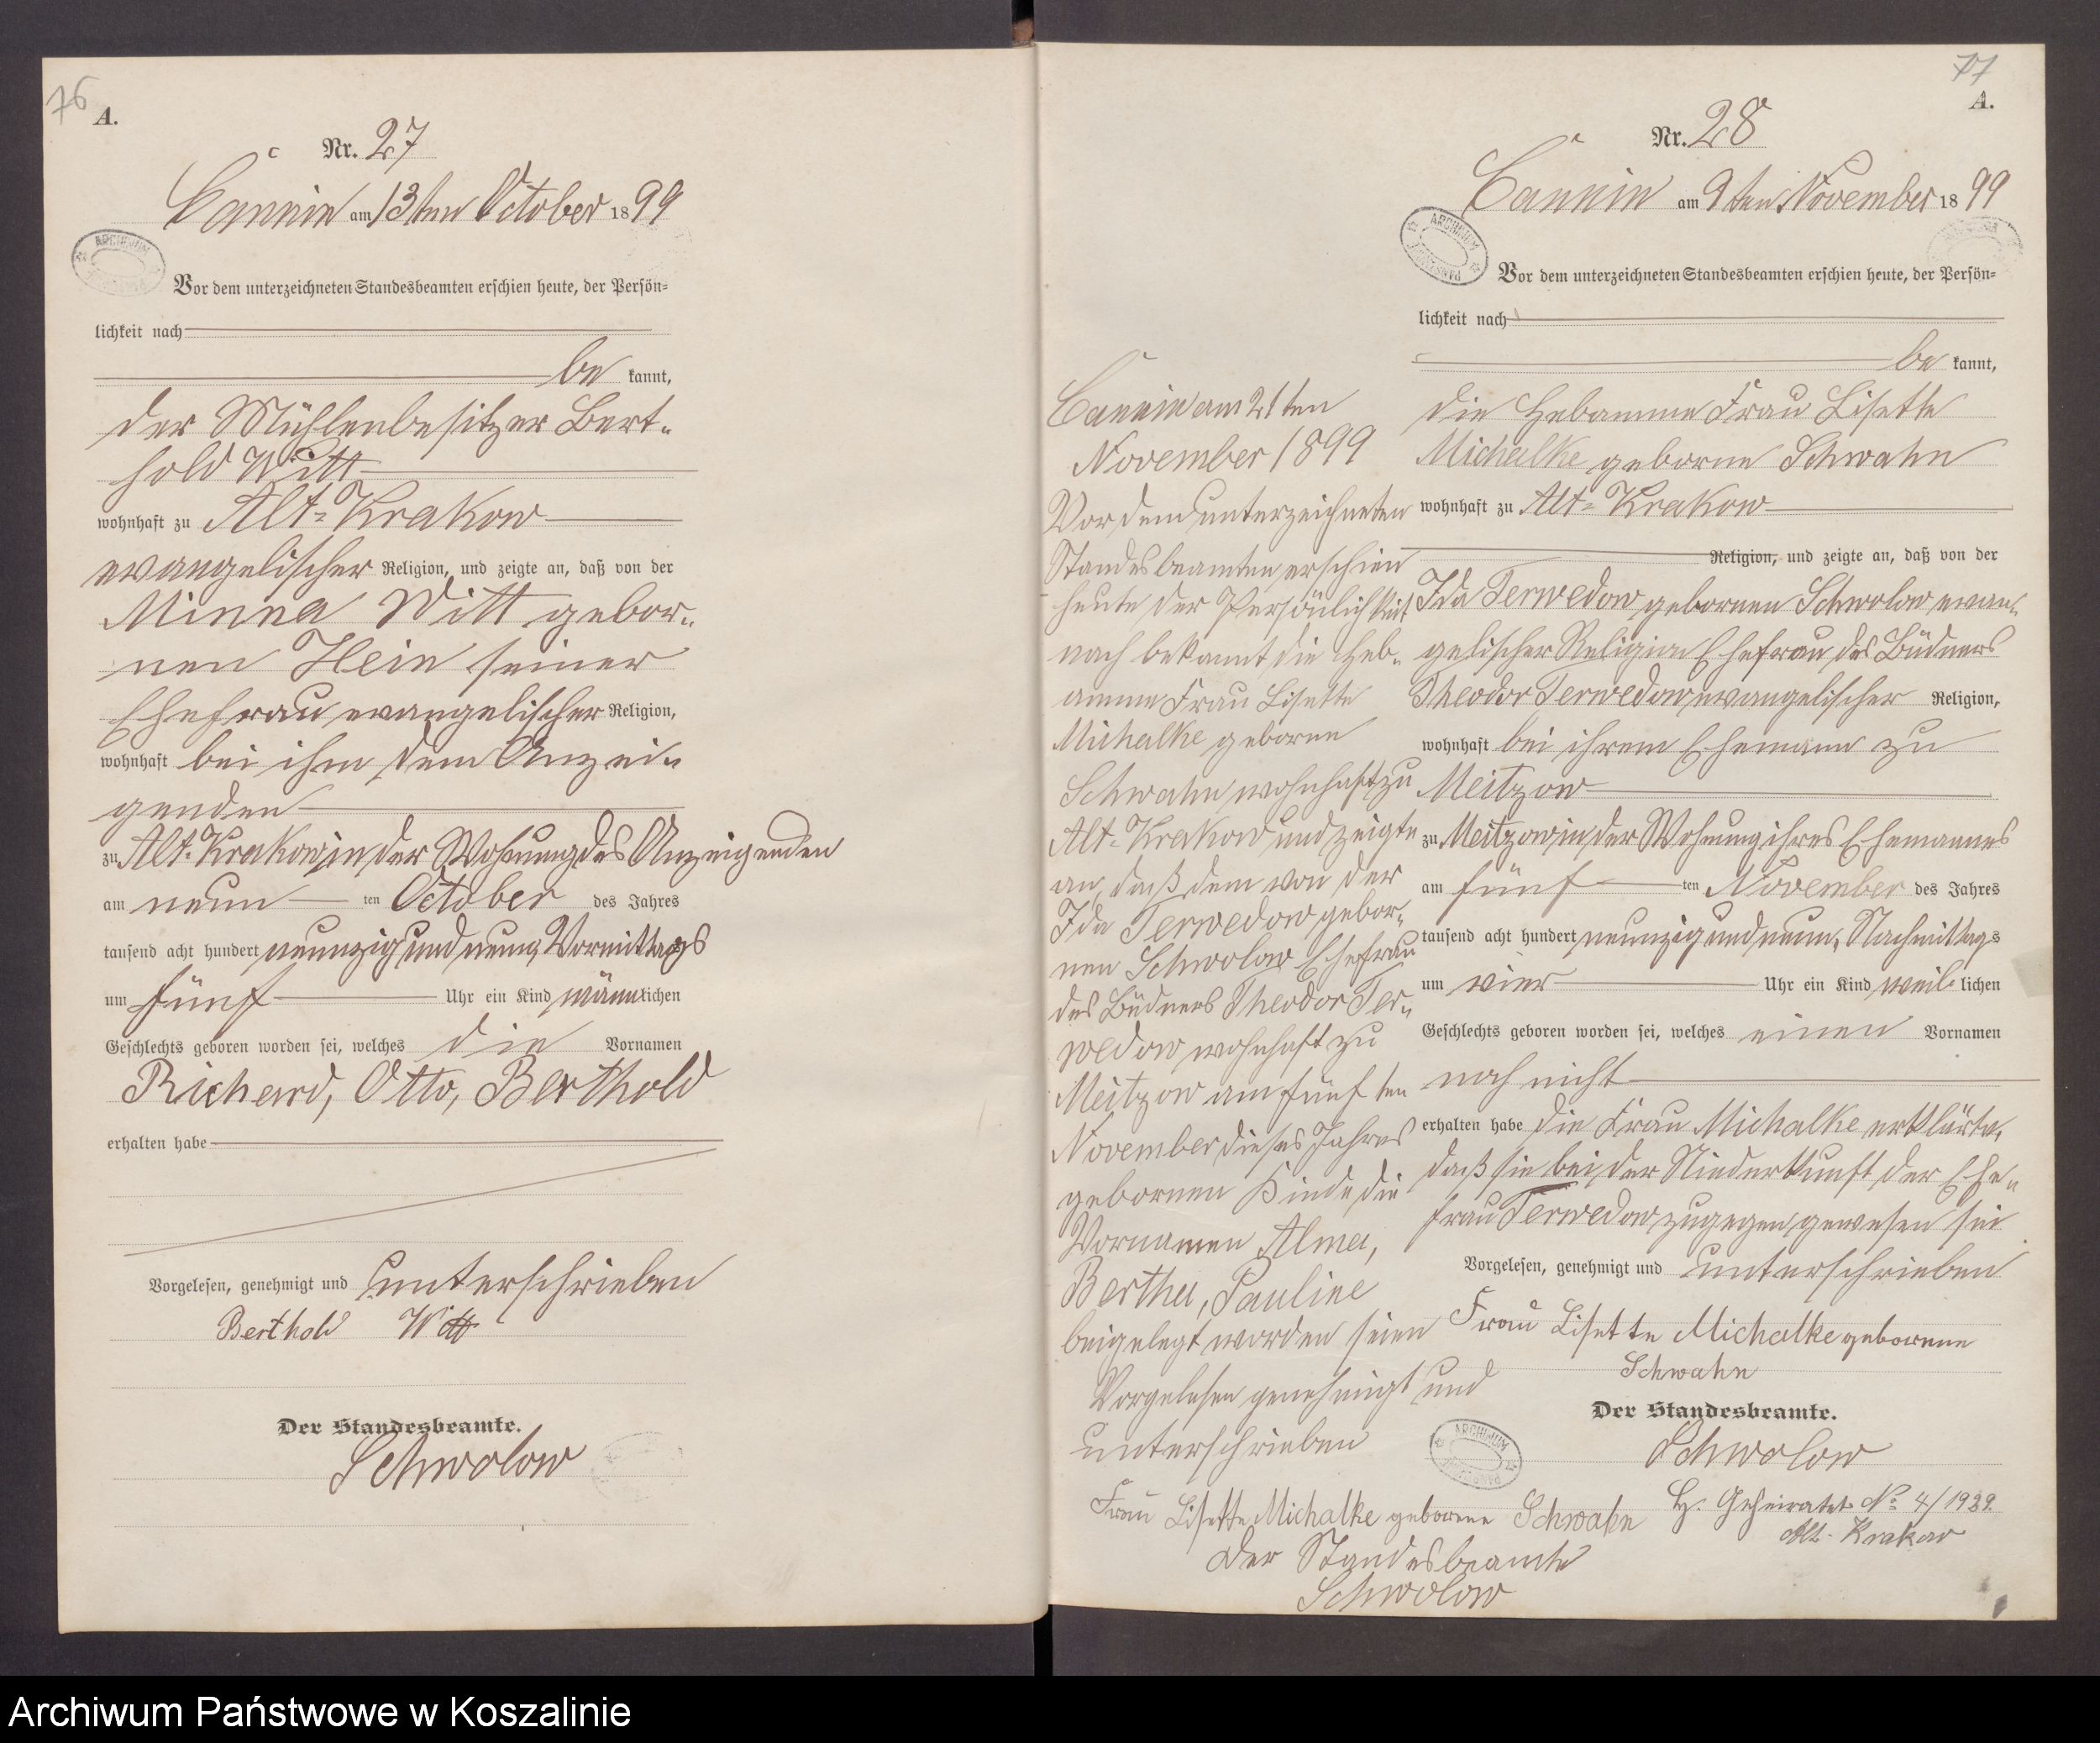 76
A.
Nr. 27
Cannin am 13ten October 1899
ARCHIWUM
Vor dem unterzeichneten Standesbeamten erschien heute, der Persön=
lichkeit nach
be kannt,
der Mühlenbesitzer Bert-
hold Witt
wohnhaft zu Alt-Krakow
evangelischer Religion, und zeigte an, daß von der
Minna Witt gebor-
nen Hein seiner
Ehefrau evangelischer Religion,
wohnhaft bei ihm dem Anzei-
genden
zu Alt-Krakow in der Wohnung des Anzeigenden
am neun ten October des Jahres
tausend acht hundert neunzig und neun, Vormittags
um fünf Uhr ein Kind männlichen
Geschlechts geboren worden sei, welches die Vornamen
Richard, Otto, Berthold
erhalten habe
Vorgelesen, genehmigt und unterschrieben
Berthold Witt
Der Standesbeamte.
Schwolow
77
A.
Nr. 28
Cannin am 9ten November 1899
ARCHIWUM
Vor dem unterzeichneten Standesbeamten erschien heute, der Persön=
lichkeit nach
be kannt,
die Hebamme Frau Lisette
Michalke geborne Schwahn
wohnhaft zu Alt-Krakow
Religion, und zeigte an, daß von der
Ida Terwedow gebornen Schwolow evan-
gelischer Religion Ehefrau des Büdners
Theodor Terwedow evangelischer Religion,
wohnhaft bei ihrem Ehemann zu
Meitzow
zu Meitzow in der Wohnung ihres Ehemannes
am fünf ten November des Jahres
tausend acht hundert neunzig und neun, Nachmittags
um vier Uhr ein Kind weib- lichen
Geschlechts geboren worden sei, welches einen Vornamen
noch nicht
erhalten habe die Frau Michalke erklärte,
daß sie bei der Niederkunft der Ehe-
frau Terwedow zugegen gewesen sei
Vorgelesen, genehmigt und unterschrieben
Frau Lisette Michalke geborene
Schwahn
Der Standesbeamte.
Schwolow
Geheiratet No 4/1939.
Alt-Krakow
Cannin am 21ten
November 1899
Vor dem unterzeichneten
Standesbeamten erschien
heute der Persönlichkeit
nach bekannt die Heb-
amme Frau Lisette
Michalke geborne
Schwahn wohnhaft zu
Alt-Krakow und zeigte
an, daß dem von der
Ida Terwedow gebor-
nen Schwolow Ehefrau
des Büdners Theodor Ter-
wedow wohnhaft zu
Meitzow am fünften
November dieses Jahres
gebornen Kinde die
Vornamen Alma,
Bertha, Pauline
beigelegt worden seien
Vorgelesen genehmigt und
unterschrieben
ARCHIWUM
Frau Lisette Michalke geborene Schwahn
Der Standesbeamte
Schwolow
Archiwum Państwowe w Koszalinie